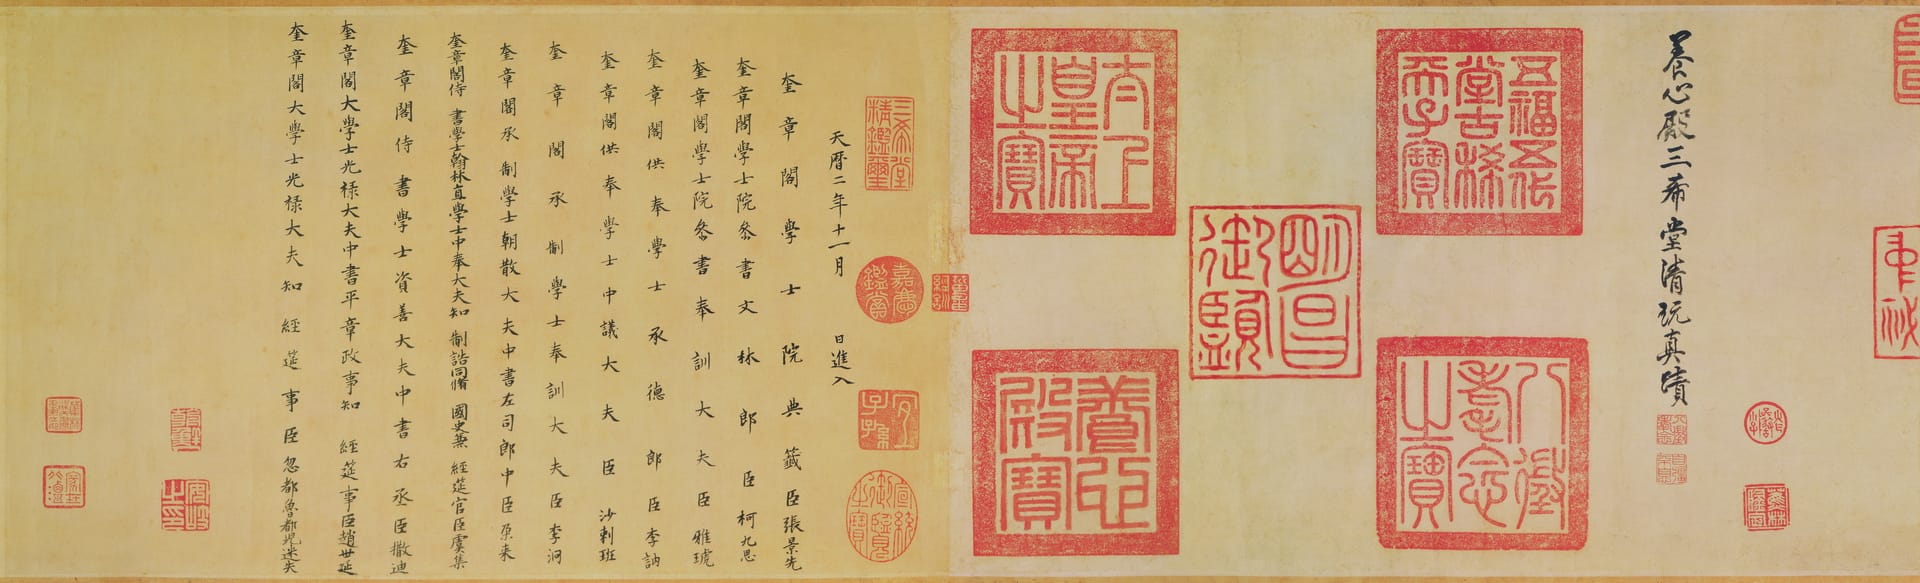 養心殿三希堂清玩真蹟
五福五代堂古稀天子寶
八徵耄念之寶
明昌御覽
太上皇帝之寶
養心殿寶
三希堂精鑑璽
嘉慶鑑賞
宜子孫
宣統御覽之寶
天曆二年十一月 日進入
奎章閣學士院典籤臣張景先
奎章閣學士院叅書文林郎臣柯九思
奎章閣學士院叅書奉訓大夫臣雅琥
奎章閣供奉學士承德郎臣李訥
奎章閣供奉學士中議大夫臣沙剌班
奎章閣承制學士奉訓大夫臣李泂
奎章閣承制學士朝散大夫中書左司郎中臣朶来
奎章閣侍書學士翰林直學士中奉大夫知制誥同脩國史兼經筵官臣虞集
奎章閣侍書學士資善大夫中書右丞臣撒迪
奎章閣大學士光祿大夫中書平章政事知經筵事臣趙世延
奎章閣大學士光祿大夫知經筵事臣忽都魯都兒迷失
安岐之印